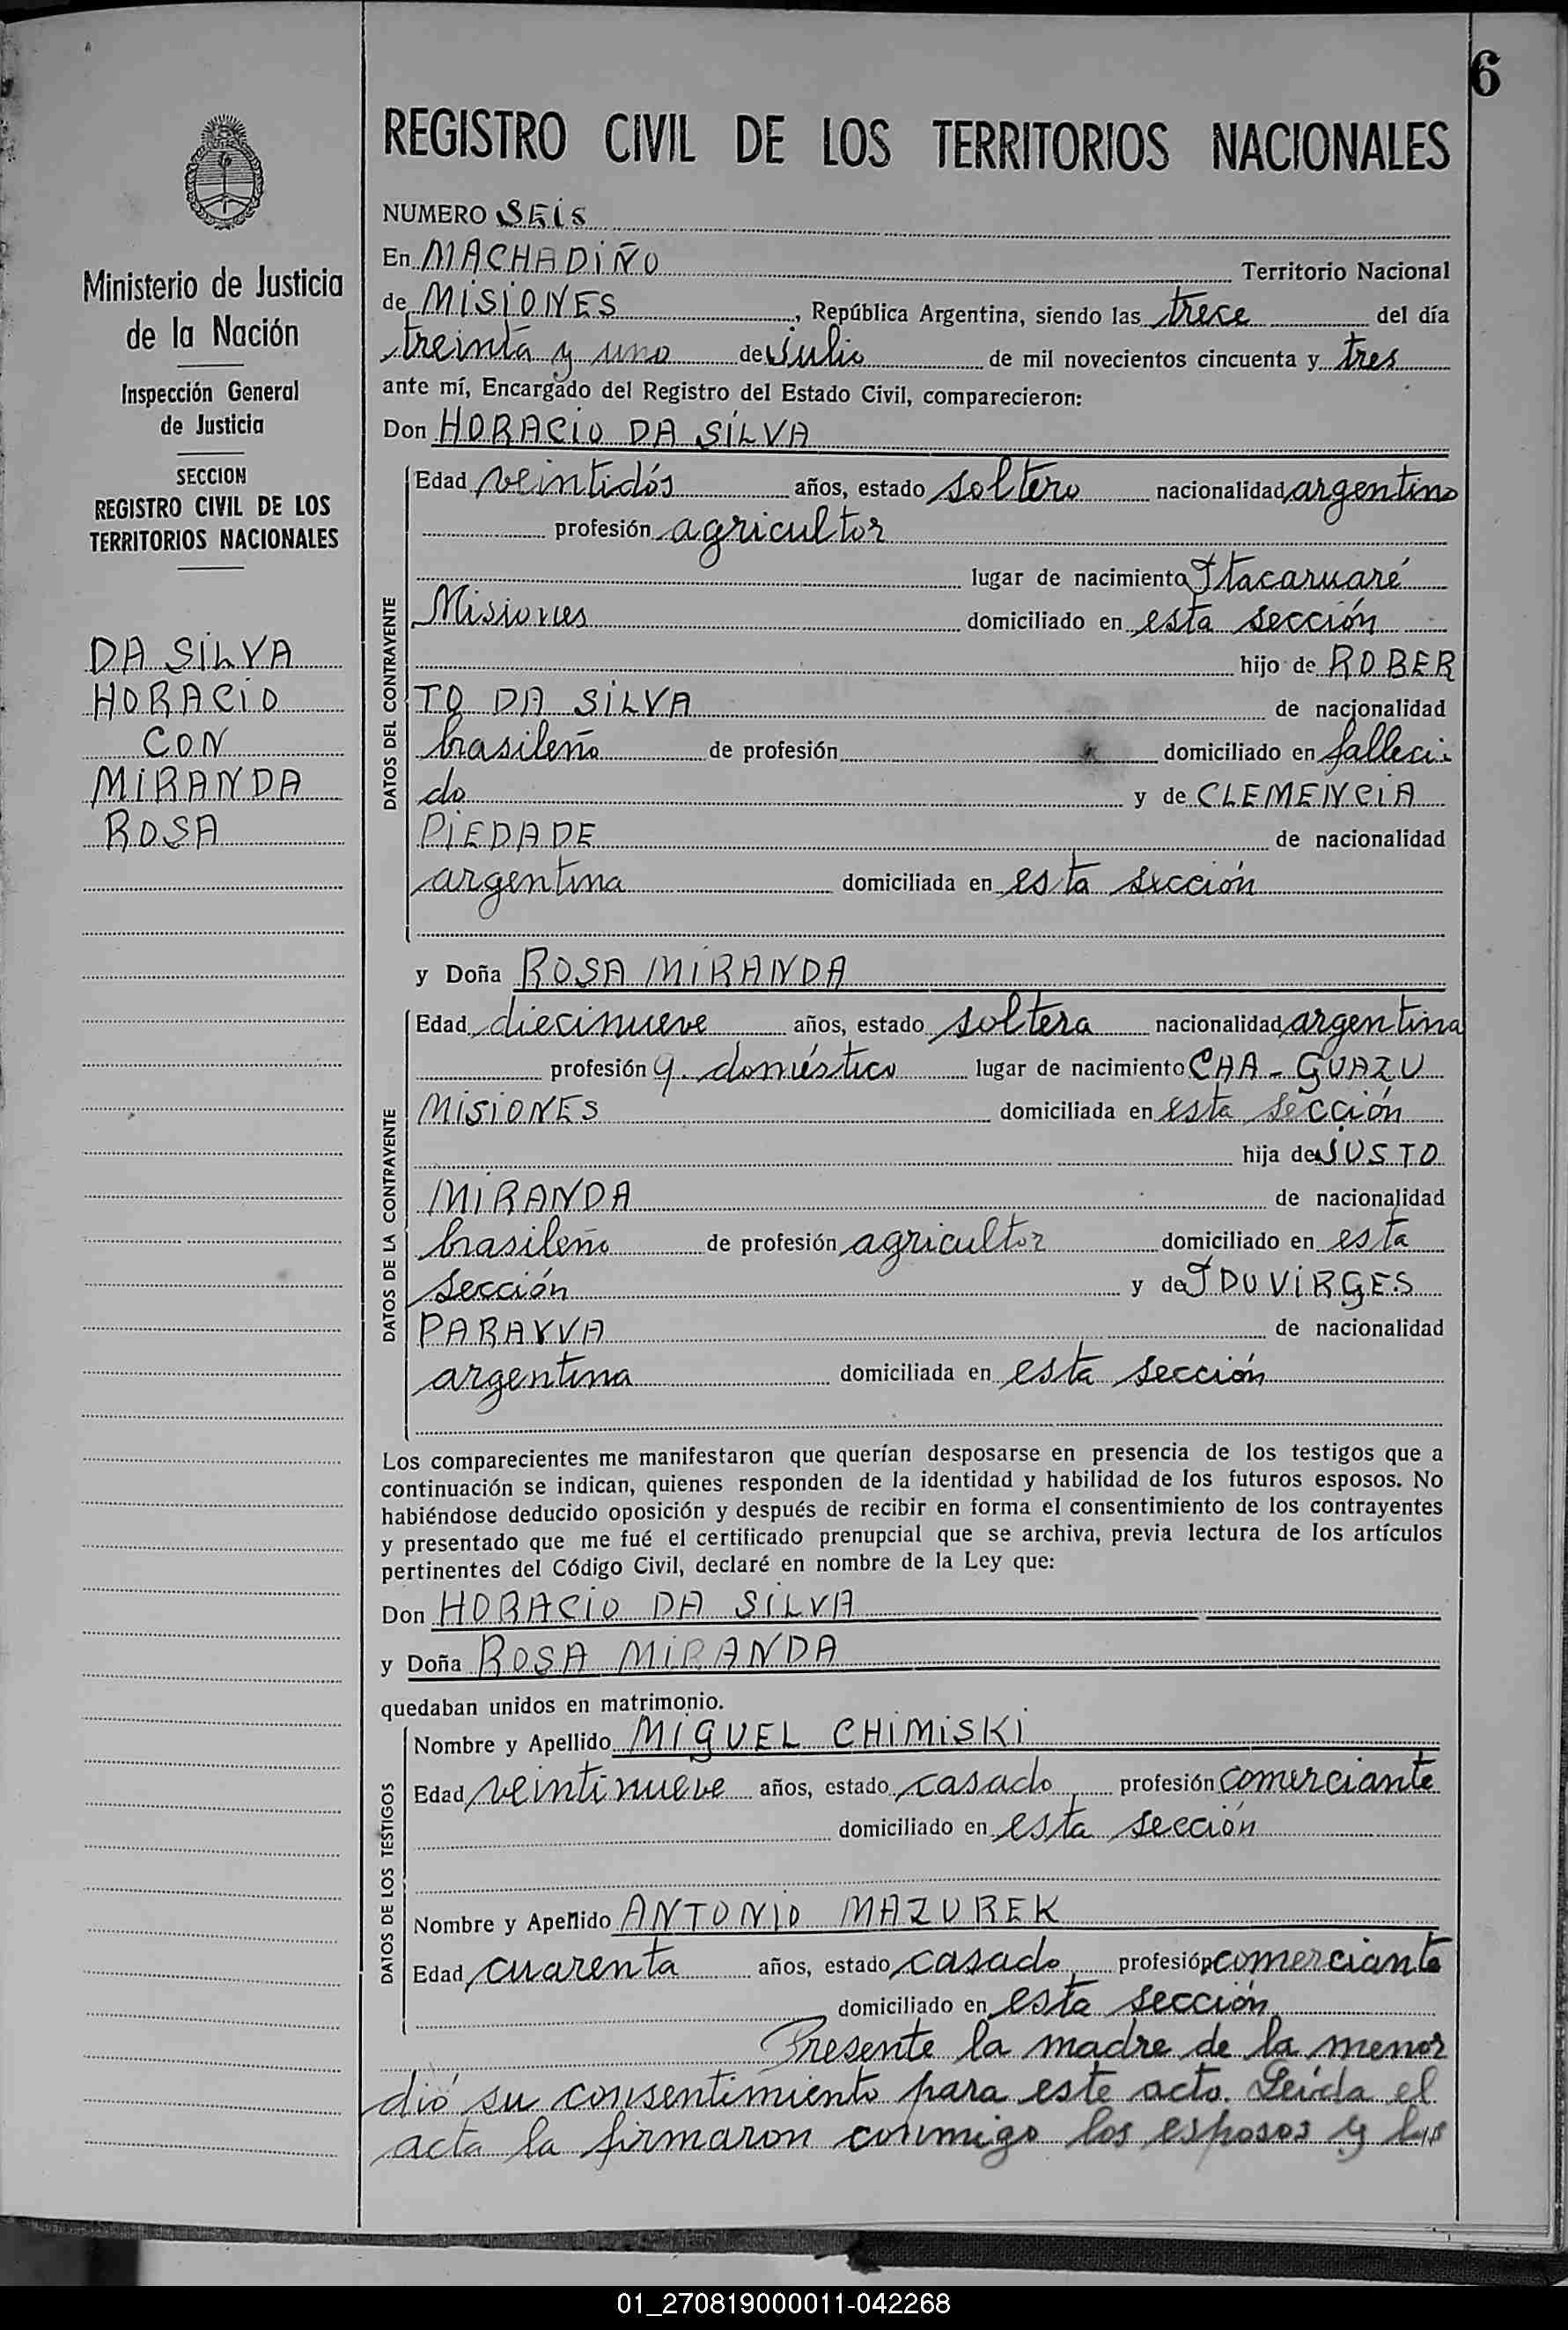 6
REGISTRO CIVIL DE LOS TERRITORIOS NACIONALES
Ministerio de Justicia
de la Nación
Inspección General
de Justicia
SECCION
REGISTRO CIVIL DE LOS
TERRITORIOS NACIONALES
DA SILVA
HORACIO
CON
MIRANDA
ROSA
NUMERO SEIS
En MACHADIÑO Territorio Nacional
de MISIONES, República Argentina, siendo las trece del día
treinta y uno de Julio de mil novecientos cincuenta y tres
ante mí, Encargado del Registro del Estado Civil, comparecieron:
Don HORACIO DA SILVA
DATOS DEL CONTRAYENTE
Edad veintidós años, estado soltero nacionalidad argentino
profesión agricultor
lugar de nacimiento Itacaruaré
Misiones domiciliado en esta sección
hijo de ROBER
TO DA SILVA de nacionalidad
brasileño de profesión domiciliado en falleci-
do y de CLEMENCIA
PIEDADE de nacionalidad
argentina domiciliada en esta sección
y Doña ROSA MIRANDA
DATOS DE LA CONTRAYENTE
Edad diecinueve años, estado soltera nacionalidad argentina
profesión q. doméstico lugar de nacimiento CHA-GUAZU
MISIONES domiciliada en esta sección
hija de JUSTO
MIRANDA de nacionalidad
brasileño de profesión agricultor domiciliado en esta
sección y de IDUVIRGES
PARAYVA de nacionalidad
argentina domiciliada en esta sección
Los comparecientes me manifestaron que querían desposarse en presencia de los testigos que a
continuación se indican, quienes responden de la identidad y habilidad de los futuros esposos. No
habiéndose deducido oposición y después de recibir en forma el consentimiento de los contrayentes
y presentado que me fué el certificado prenupcial que se archiva, previa lectura de los artículos
pertinentes del Código Civil, declaré en nombre de la Ley que:
Don HORACIO DA SILVA
y Doña ROSA MIRANDA
quedaban unidos en matrimonio.
DATOS DE LOS TESTIGOS
Nombre y Apellido MIGUEL CHIMISKI
Edad veintinueve años, estado casado profesión comerciante
domiciliado en esta sección
Nombre y Apellido ANTONIO MAZUREK
Edad cuarenta años, estado casado profesión comerciante
domiciliado en esta sección
Presente la madre de la menor
dió su consentimiento para este acto. Leída el
acta la firmaron conmigo los esposos y los
01_270819000011-042268